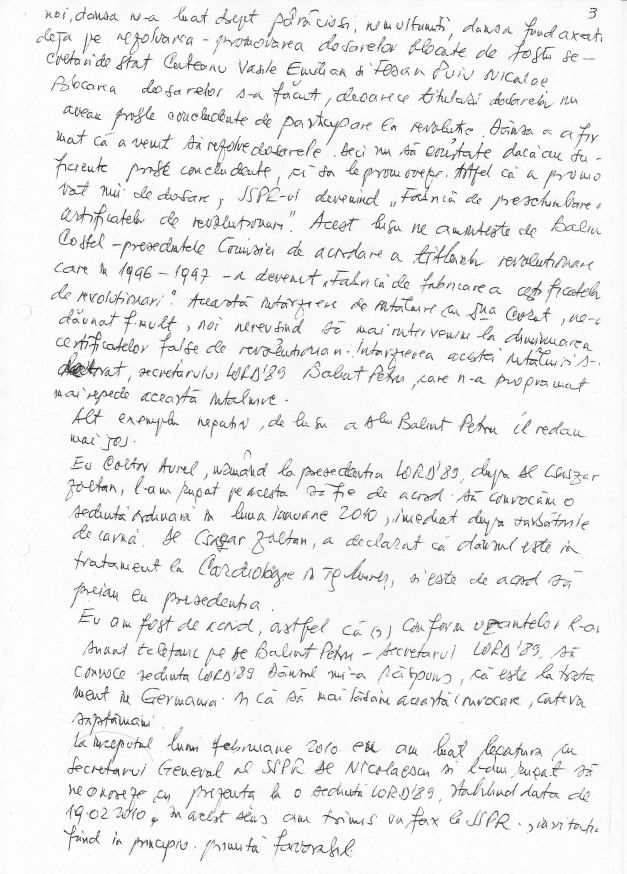 3
noi, dânsa n-a luat drept pârâcioși, nemulțumiți, dânsa fiind axată
deja pe rezolvarea - promovarea dosarelor blocate de foștii se-
cretari de Stat Cuteanu Vasile Emilian si Fesan Puiu Nicolae
Blocarea dosarelor s-a făcut, deoarece titularii dosarelor nu
aveau probe concludente de participare la revoluție. Dânsa a afir
mat că a venit să rezolve dosarele. Deci nu să constate dacă au su-
ficiente probe concludente, ci sa le promoveze. Astfel că a promo
vat mii de dosare, SSPR-ul devenind „Fabrică de preschimbare a
certificatelor de revoluționari". Acest lucru ne amintește de Baliu
Costel - președintele Comisiei de acordare a titlului revoluționare
care in 1996 - 1997 - a devenit „Fabrică de fabricare a certificatelor
de revoluționari". Această întârziere de întâlnire cu D-na Cerat, ne-a
dăunat f. mult, noi nereușind să mai intervenim la diminuarea
certificatelor false de revoluționari. Întârzierea acestei întâlniri s-a
datorat, secretarului LORD'89 Balint Petru, care n-a programat
mai repede această întâlnire.
Alt exemplu negativ, de lucru a d-lui Balint Petru îl redau
mai jos.
Eu Coltor Aurel, urmând la președenția LORD'89, după Dl Csaszar
Zoltan, l-am rugat pe acesta să fie de acord să convocăm o
sedință ordinară in luna ianuarie 2010, imediat după sărbătorile
de iarnă. Dl Csaszar Zoltan, a declarat că dânsul este in
tratament la Cardiologie in Tg Mureș, si este de acord să
preiau eu președenția.
Eu am fost de acord, astfel că (s) conform uzanțelor l-am
sunat telefonic pe Dl Balint Petru - Secretarul LORD'89, să
convoce sedința LORD'89 Dânsul mi-a răspuns, că este la trata
ment in Germania si că să mai lăsăm această convocare, câteva
săptămâni.
La inceputul lunii februarie 2010 eu am luat legatura cu
Secretarul General al SSPR Dl Nicolaescu si l-am rugat să
ne onoreze cu prezența la o sedință LORD'89, stabilind data de
19.02.2010, in acest sens am trimis un fax la SSPR., invitația
fiind in principiu primită favorabil.